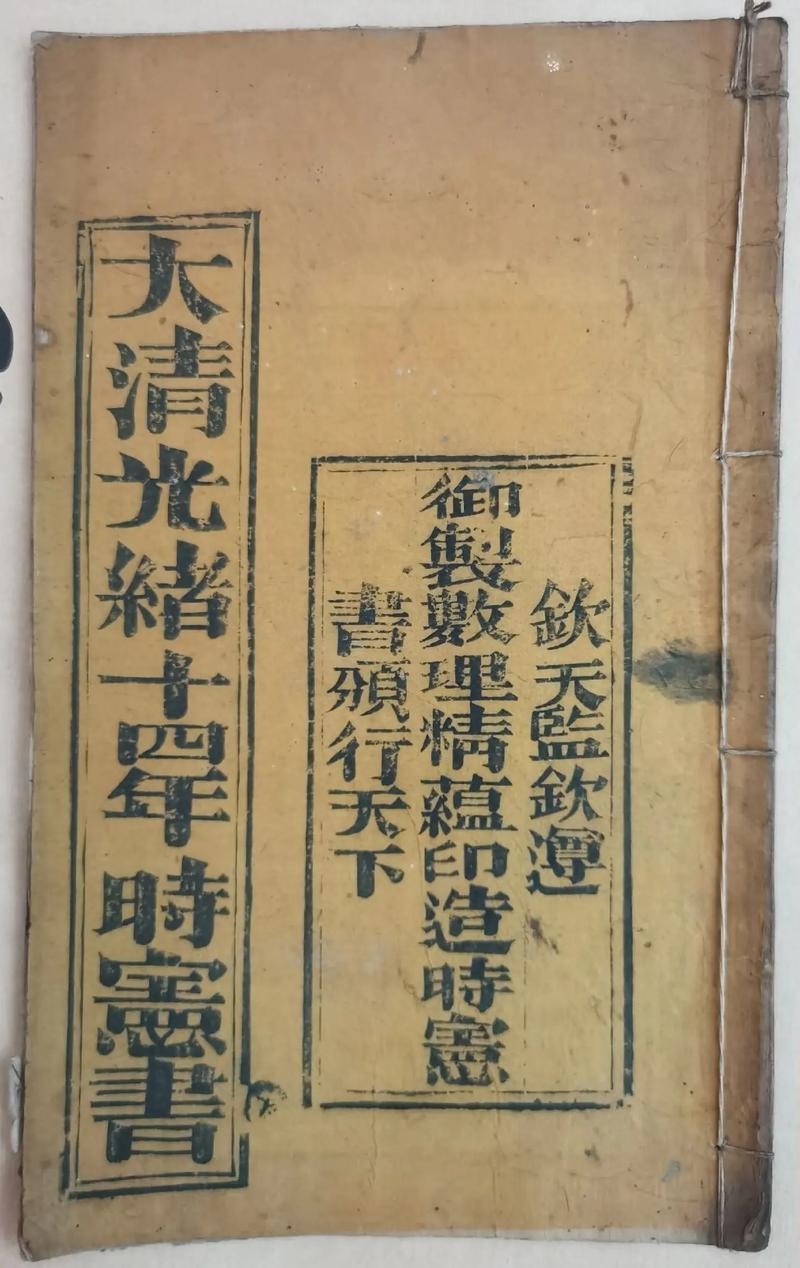 欽天監欽遵
御製數理精蘊印造時憲
書頒行天下
大清光緒十四年時憲書